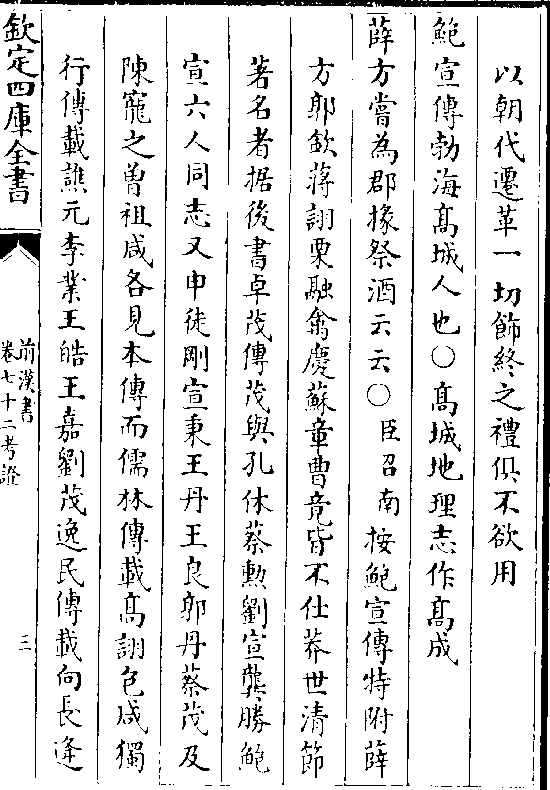 以朝代遷革一切飾終之禮俱不欲用
鮑宣傳勃海髙城人也○髙城地理志作髙成
薛方嘗為郡掾祭酒云云○臣召南按鮑宣傳特附薛
方郭欽蔣詡栗融禽慶蘇章曹竟皆不仕莽世清節
著名者据後書卓茂傳茂與孔休蔡勲劉宣龔勝鮑
宣六人同志又申徒剛宣秉王丹王良郭丹蔡茂及
陳寵之曽祖咸各見本傳而儒林傳載髙詡包咸獨
行傳載譙元李業王皓王嘉劉茂逸民傳載向長逄
欽定四庫全書
前漢書
卷七十二考證
三